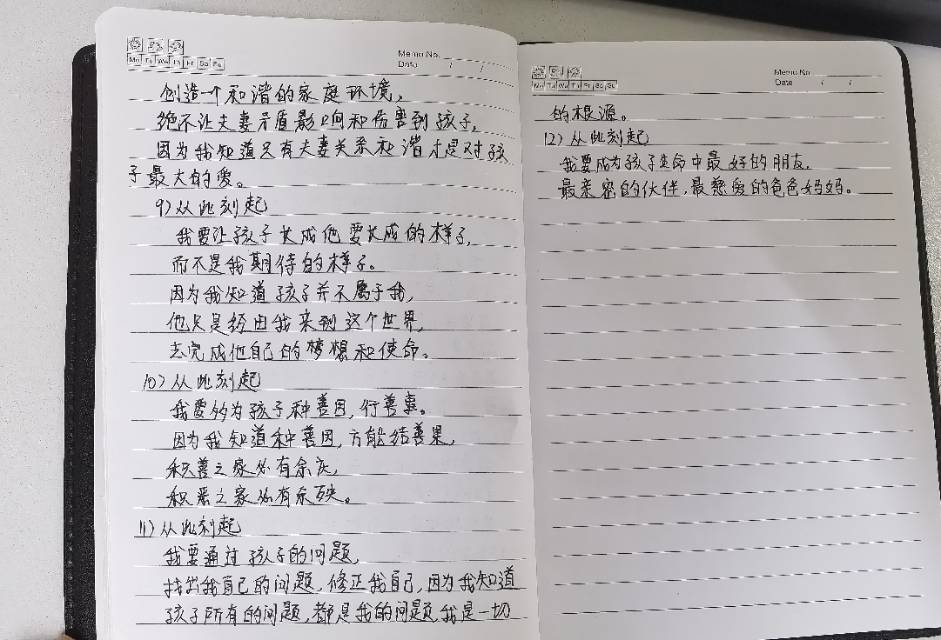 Memo No.
Mo Tu We Th Fr Sa Su
Date / /
创造一个和谐的家庭环境,
绝不让夫妻矛盾影响和伤害到孩子,
因为我知道只有夫妻关系和谐才是对孩
子最大的爱。
9)从此刻起
我要让孩子长成他要长成的样子,
而不是我期待的样子。
因为我知道孩子并不属于我,
他只是经由我来到这个世界,
去完成他自己的梦想和使命。
10)从此刻起
我要多为孩子种善因,行善事。
因为我知道种善因,方能结善果,
积善之家必有余庆,
积恶之家必有余殃。
11)从此刻起
我要通过孩子的问题,
找出我自己的问题,修正我自己,因为我知道
孩子所有的问题,都是我的问题,我是一切
Memo No.
Mo Tu We Th Fr Sa Su
Date / /
的根源。
12)从此刻起
我要成为孩子生命中最好的朋友,
最亲密的伙伴,最慈爱的爸爸妈妈。